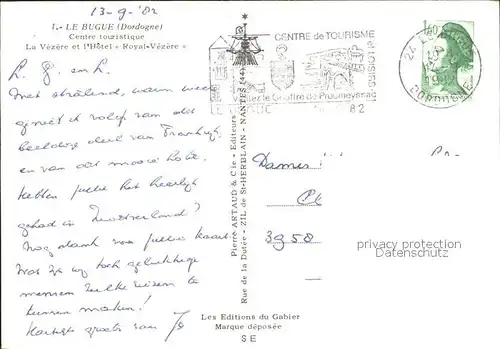 13-9-'82
1.- LE BUGUE (Dordogne)
Centre touristique
La Vézère et l'Hôtel « Royal-Vézère »
L. G. en L.
Met stralend, warm weer
geniet ik volop van dat
beeldig deel van Frankrijk
en van dit mooie hotel.
Hebben jullie het heerlijk
gehad in Zwitserland?
Nog dank voor jullie kaart.
Wat zijn wij toch gelukkige
mensen zulke reizen te
kunnen maken!
Hartelijke groeten van
Pierre ARTAUD & Cie • Editeurs
Rue de la Dutée - ZIL de St-HERBLAIN - NANTES (44)
CENTRE de TOURISME
LOISIRS
Visitez le Gouffre de Proumeyssac
LE BUGUE
82
1,40
24
DORDOGNE
Dames
3958
privacy protection
Datenschutz
Les Editions du Gabier
Marque déposée
S E